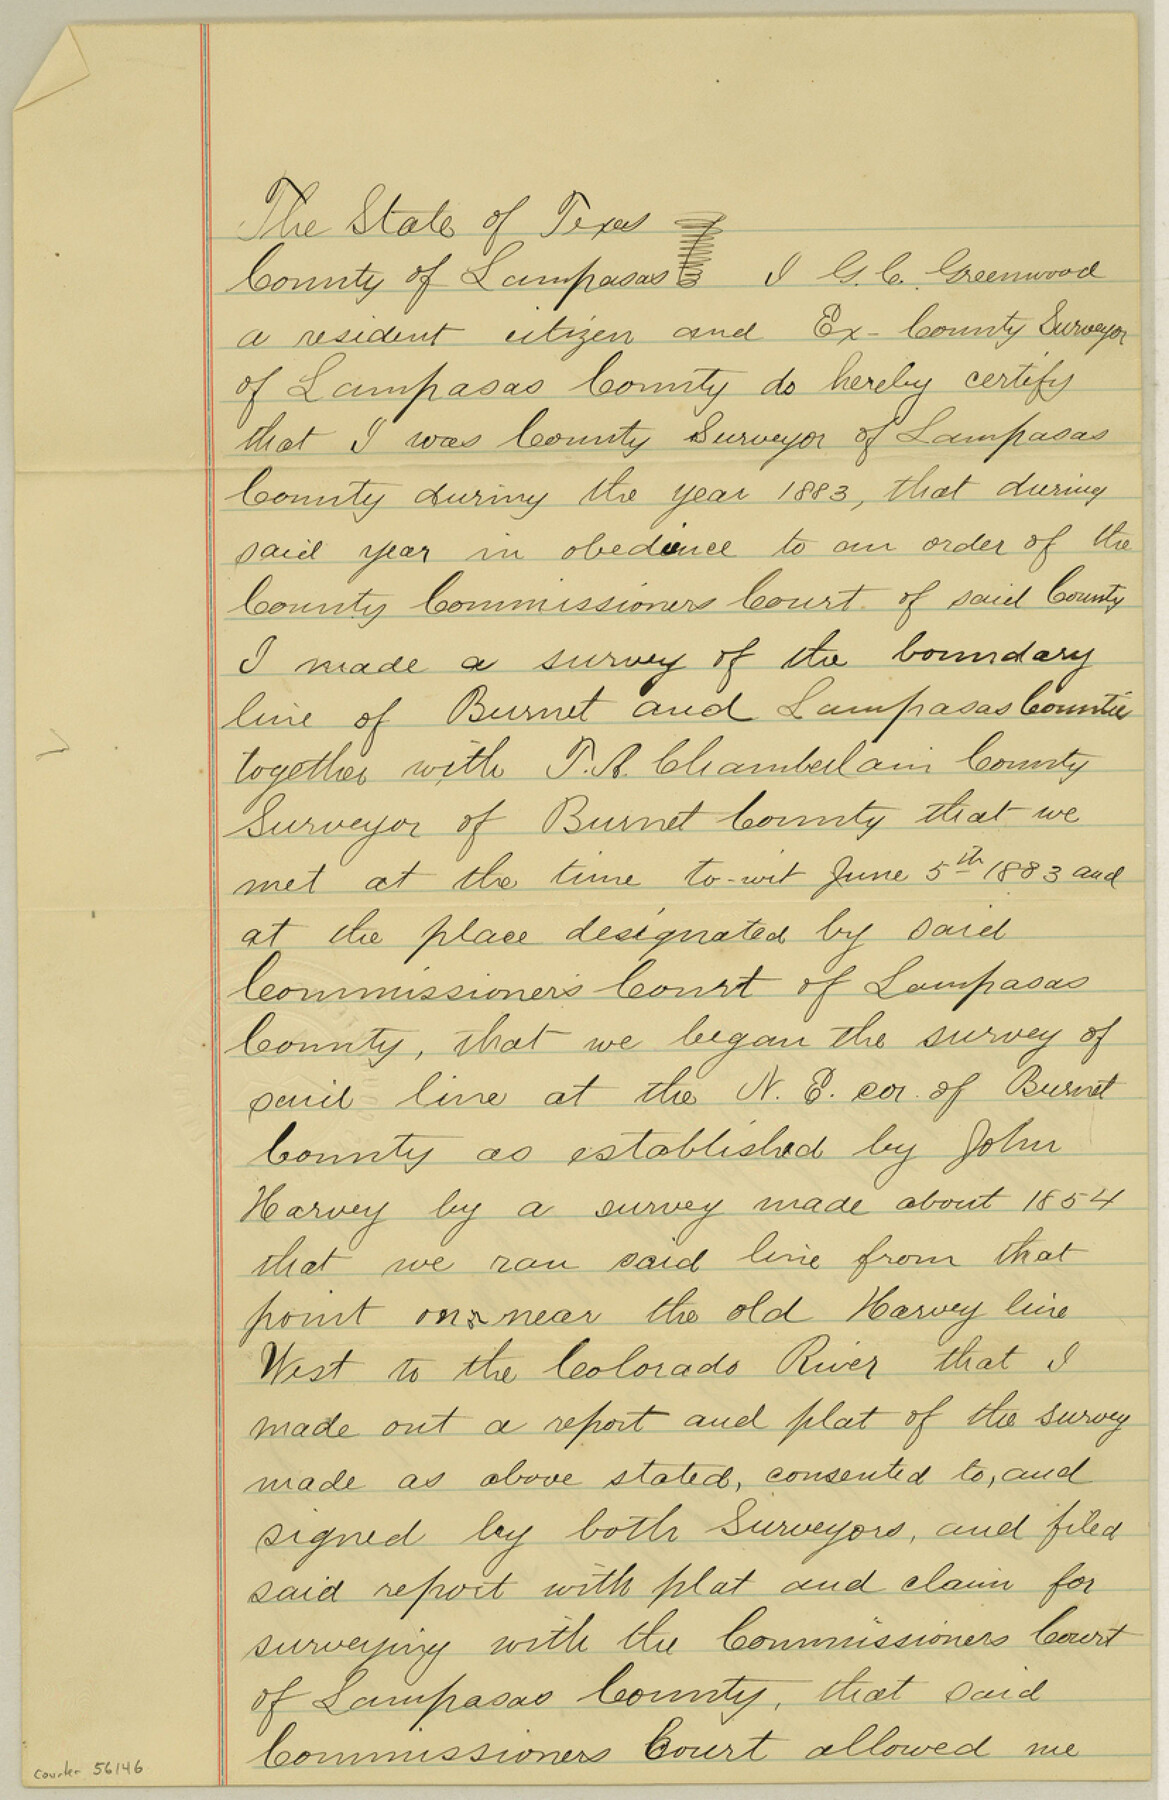 The State of Texas
County of Lampasas I G. C. Greenwood
a resident citizen and Ex- County Surveyor
of Lampasas County do hereby certify
that I was County Surveyor of Lampasas
County during the year 1883, that during
said year in obedience to an order of the
County Commissioners Court of said County
I made a survey of the boundary
line of Burnet and Lampasas Counties
together with T. A. Chamberlain County
Surveyor of Burnet County that we
met at the time to-wit June 5th 1883 and
at the place designated by said
Commissioner's Court of Lampasas
County, that we began the survey of
said line at the N. E. cor. of Burnet
County as established by John
Harvey by a survey made about 1854
that we ran said line from that
point on near the old Harvey line
West to the Colorado River that I
made out a report and plat of the survey
made as above stated, consented to, and
signed by both Surveyors, and filed
said report with plat and claim for
surveying with the Commissioners Court
of Lampasas County, that said
Commissioners Court allowed me
counter 56146